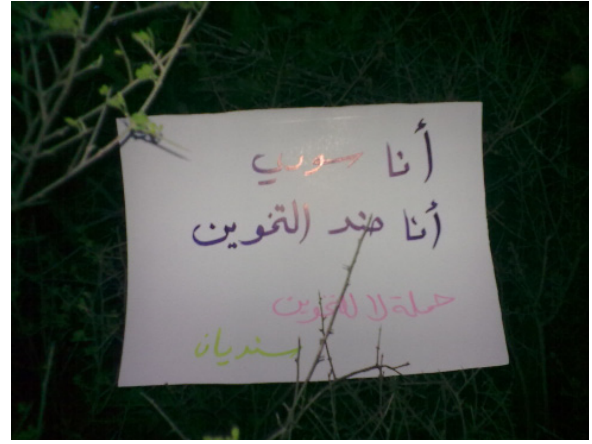 أنا سوري
أنا ضد التخوين
حملة لا للتخوين
سنديان